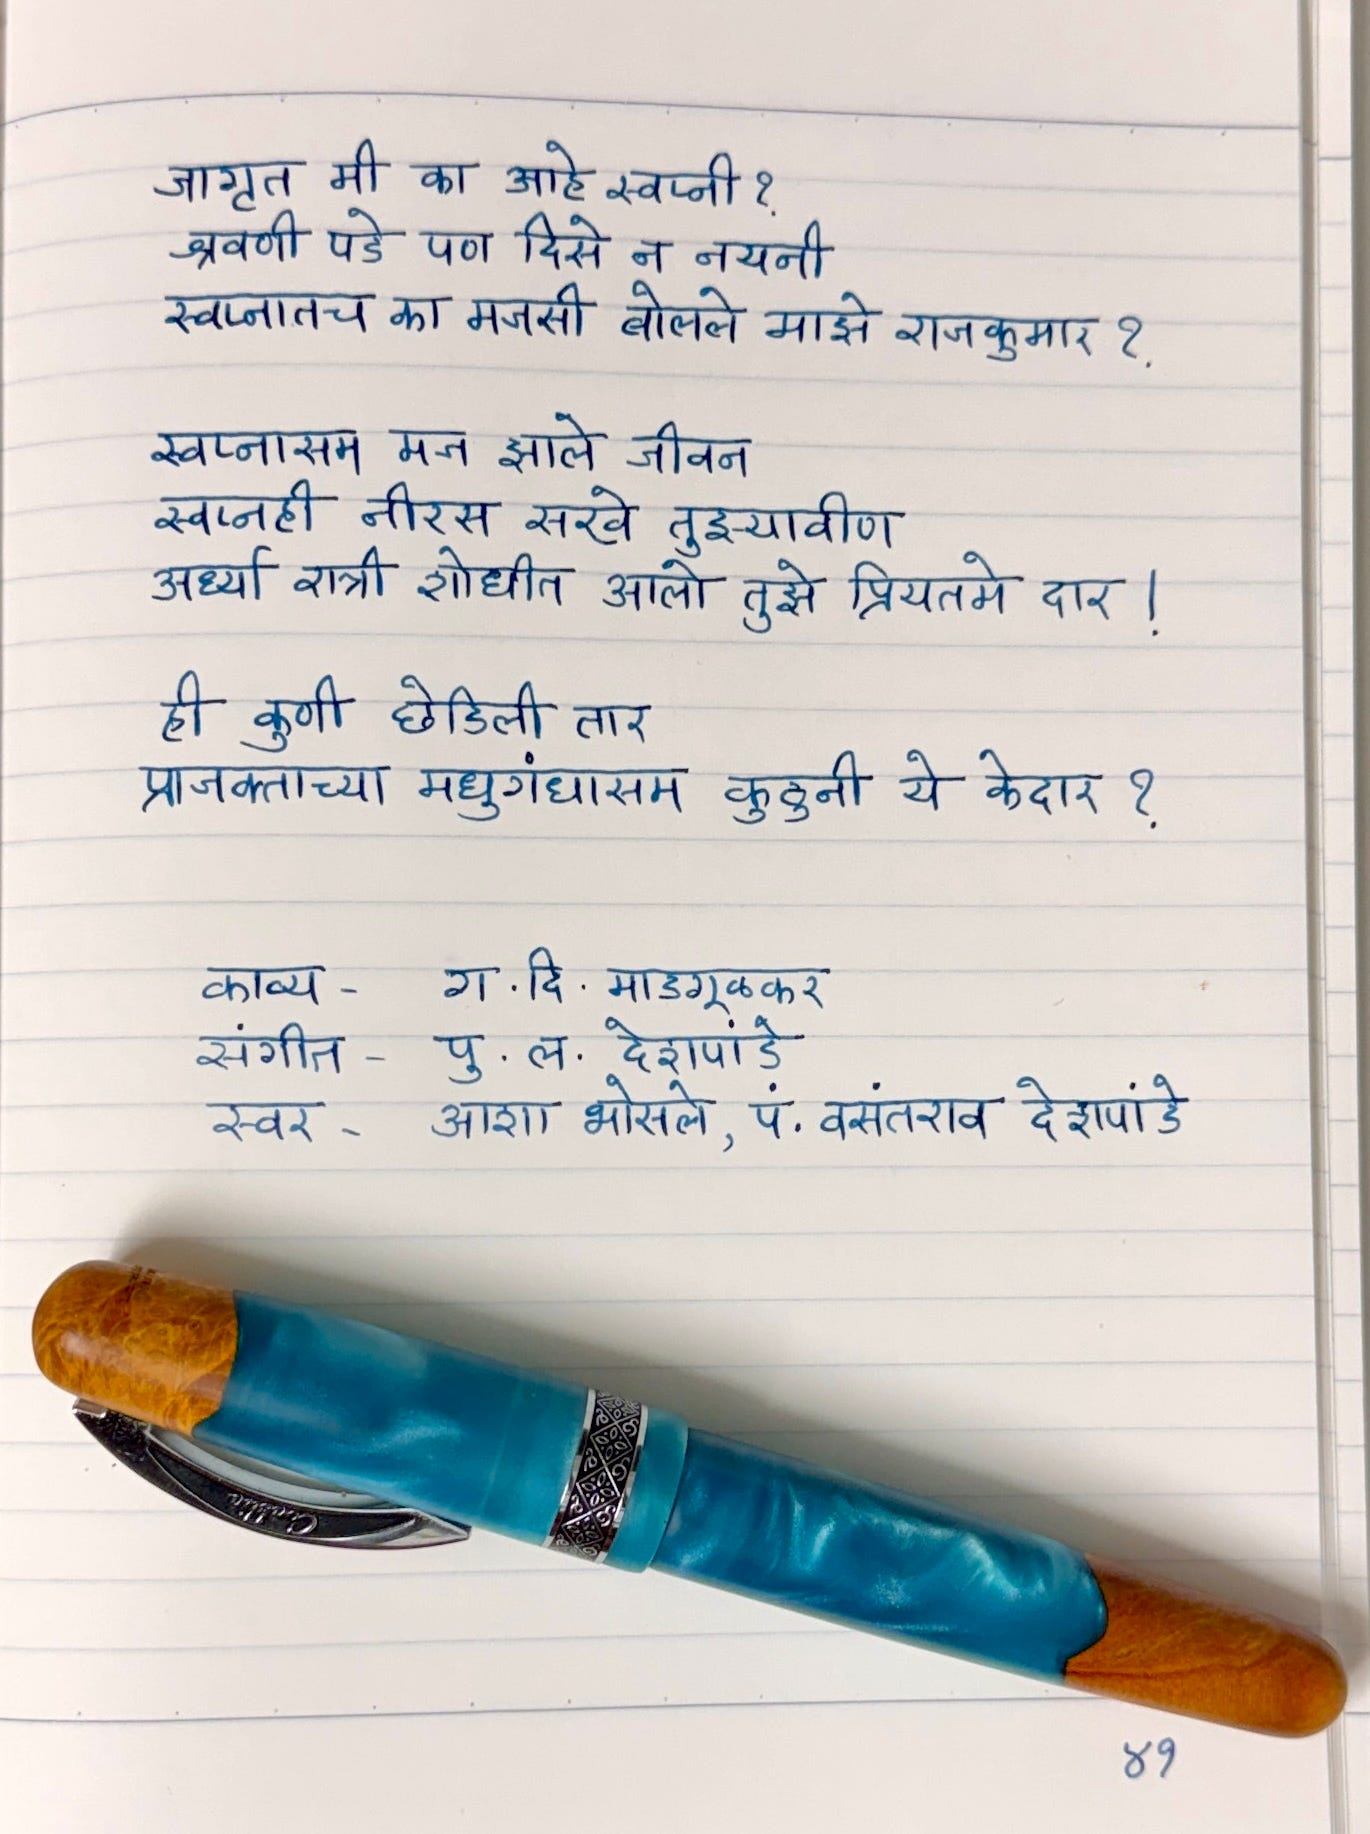 जागृत मी का आहे स्वप्नी ?
श्रवणी पडे पण दिसे न नयनी
स्वप्नातच का मजसी बोलले माझे राजकुमार ?
स्वप्नासम मज झाले जीवन
स्वप्नही नीरस सखे तुझ्यावीण
अर्ध्या रात्री शोधीत आलो तुझे प्रियतमे दार !
ही कुणी छेडिली तार
प्राजक्ताच्या मधुगंधासम कुठुनी ये केदार ?
काव्य - ग. दि. माडगूळकर
संगीत - पु. ल. देशपांडे
स्वर - आशा भोसले, पं. वसंतराव देशपांडे
४१